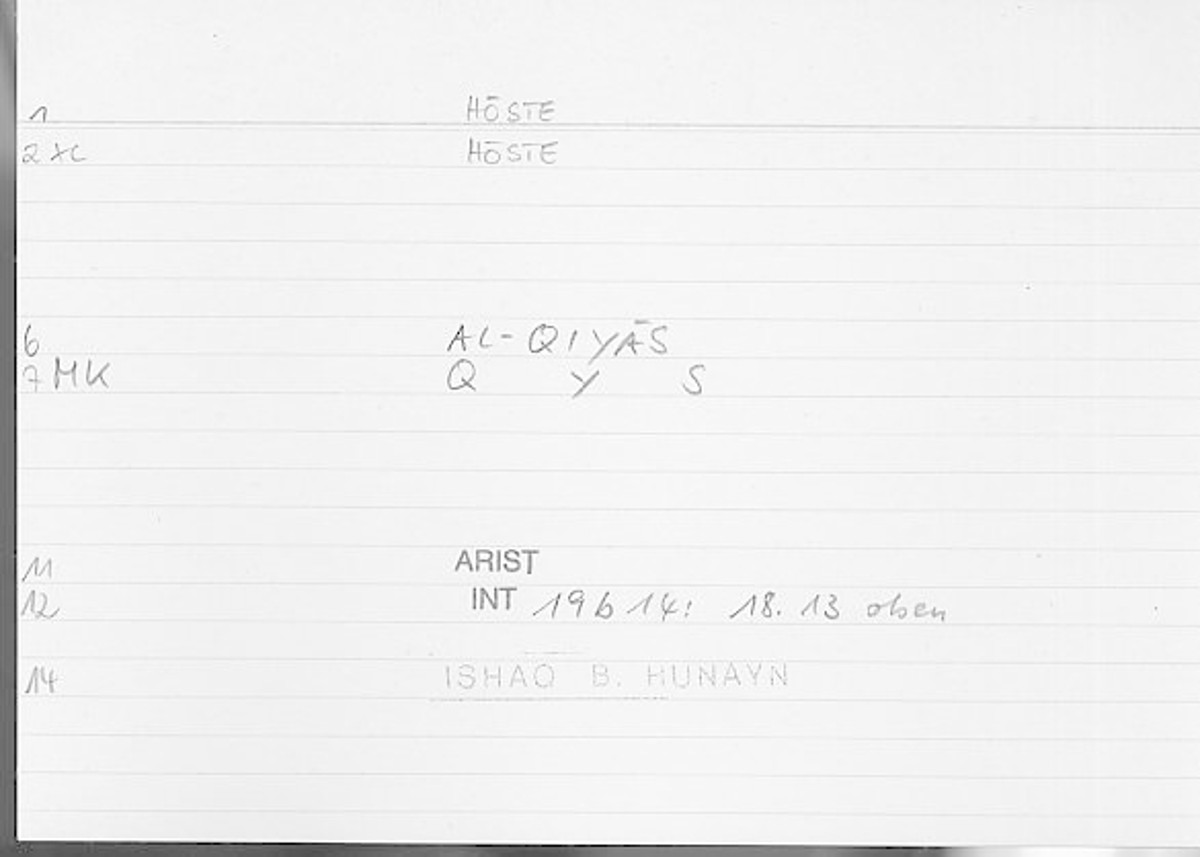 1 HŌSTE
2 XC HŌSTE
6 AL-QIYĀS
7 MK Q Y S
11 ARIST
12 INT 19b14: 18.13 oben
14 ISHAQ B. HUNAYN